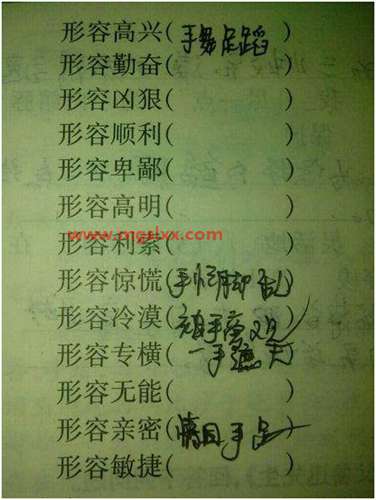 形容高兴(手舞足蹈)
形容勤奋( )
形容凶狠( )
形容顺利( )
形容卑鄙( )
形容高明( )
www.mgslxx.com
形容利索( )
形容惊慌(手忙脚乱)
形容冷漠(袖手旁观)
形容专横(一手遮天)
形容无能( )
形容亲密(情同手足)
形容敏捷( )